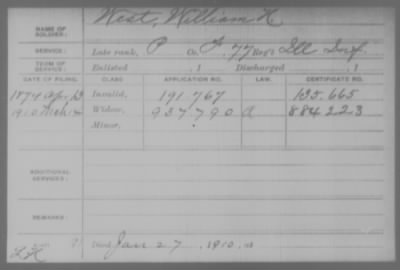 NAME OF SOLDIER: West, William H.
SERVICE: Late rank, P Co. F, 77 Reg't Ill Inf.
TERM OF SERVICE: Enlisted , 1 Discharged , 1
DATE OF FILING. CLASS. APPLICATION NO. LAW. CERTIFICATE NO.
1874 Apr. 13 Invalid, 191 767 135.665
1910 Mch Widow, 937,790 a 884223
Minor,
ADDITIONAL SERVICES:
REMARKS:
Died Jan 27, 1910,